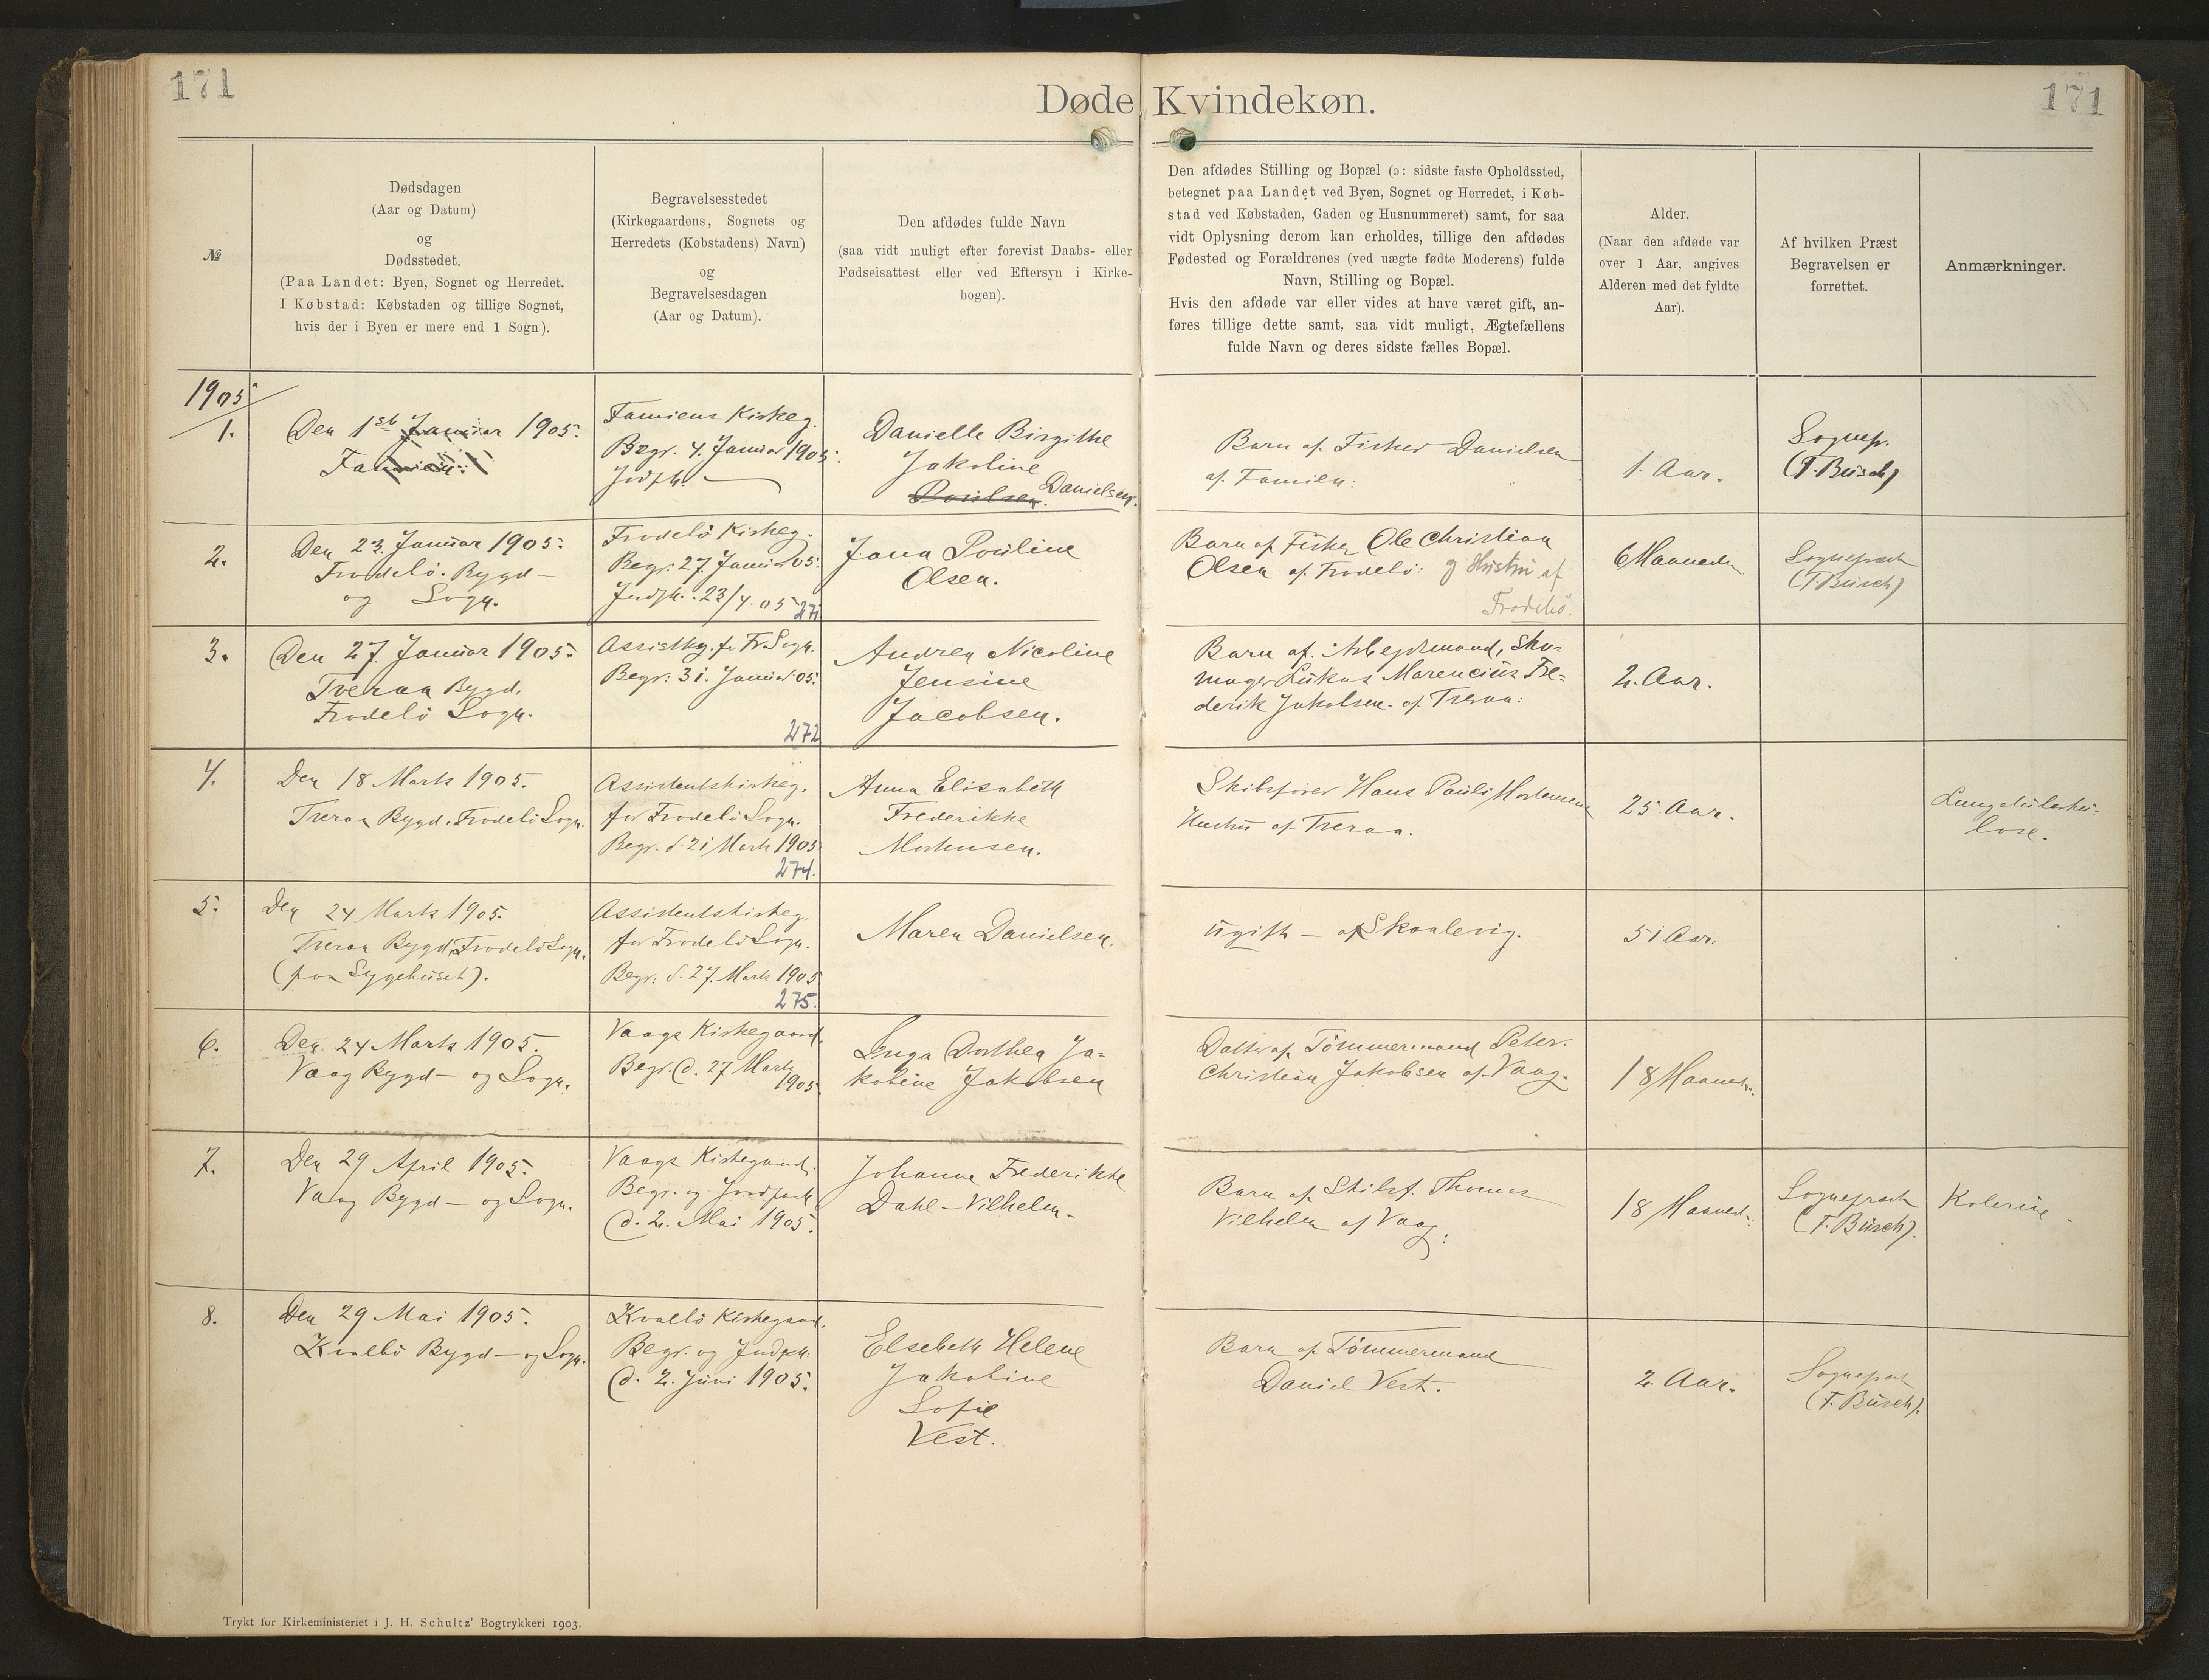 171
171
Døde Kvindekøn.
№
Dødsdagen
(Aar og Datum)
og
Dødsstedet.
(Paa Landet: Byen, Sognet og Herredet.
I Købstad: Købstaden og tillige Sognet,
hvis der i Byen er mere end 1 Sogn).
Begravelsesstedet
(Kirkegaardens, Sognets og
Herredets (Købstadens) Navn)
og
Begravelsesdagen
(Aar og Datum).
Den afdødes fulde Navn
(saa vidt muligt efter forevist Daabs- eller
Fødselsattest eller ved Eftersyn i Kirke-
bogen).
Den afdødes Stilling og Bopæl (ɔ: sidste faste Opholdssted,
betegnet paa Landet ved Byen, Sognet og Herredet, i Køb-
stad ved Købstaden, Gaden og Husnummeret) samt, for saa
vidt Oplysning derom kan erholdes, tillige den afdødes
Fødested og Forældrenes (ved uægte fødte Moderens) fulde
Navn, Stilling og Bopæl.
Hvis den afdøde var eller vides at have været gift, an-
føres tillige dette samt, saa vidt muligt, Ægtefællens
fulde Navn og deres sidste fælles Bopæl.
Alder.
(Naar den afdøde var
over 1 Aar, angives
Alderen med det fyldte
Aar).
Af hvilken Præst
Begravelsen er
forrettet.
Anmærkninger.
1905
1.
Den 1st Januar 1905.
Famien:
Famiens Kirkeg.
Begr. 4. Januar 1905.
Jordfk.
Danielle Birgithe
Jakoline
Poulsen. Danielsen.
Barn af Fisker Danielsen
af Famien:
1. Aar.
Sognep.
(F. Busch)
2.
Den 23. Januar 1905.
Frodebø. Bygd-
og Sogn.
Frodebø Kirkeg.
Begr. 27. Januar 05.
Jordfk. 23/4. 05
271
Jana Pouline
Olsen.
Barn af Fisker Ole Christian
Olsen af Frodebø: og Hustru af
Frodebø.
6 Maaneder
Sognepræst
(F. Busch)
3.
Den 27. Januar 1905.
Tveraa Bygd,
Frodebø Sogn.
Assistkg. f. Fr. Sogn.
Begr: 31. Januar 05.
272
Andrea Nicoline
Jensine
Jacobsen.
Barn af. Arbejdsmand, Sko-
mager Lukas Marencius Fre-
derik Jakobsen. af Tveraa:
2. Aar.
4.
Den 18 Marts 1905.
Tveraa Bygd. Frodebø Sogn.
Assistentskirkeg.
for Frodebø Sogn.
Begr. d. 21 Marts 1905
274.
Anna Elisabeth
Frederikke
Mortensen.
Skibsfører Hans Pauli Mortensens
Hustru af. Tveraa.
25. Aar.
Lungetuberku-
lose.
5.
Den 24 Marts 1905.
Tveraa Bygd, Frodebø Sogn.
(paa Sygehuset).
Assistentskirkeg.
for Frodebø Sogn.
Begr: d. 27. Marts 1905
275.
Maren Danielsen.
ugift – af Skaalevig.
51 Aar.
6.
Den 24 Marts 1905.
Vaag Bygd – og Sogn.
Vaags Kirkegaard.
Begr. d. 27 Marts
1905.
Inga Dorthea Ja-
kobine Jakobsen
Datter af Tømmermand Peter.
Christian Jakobsen af. Vaag.
18 Maaneder.
7.
Den 29 April 1905.
Vaag Bygd – og Sogn.
Vaags Kirkegaard.
Begr. og Jordfk
d. 2. Mai 1905.
Johanne Frederikke
Dahl-Vilhelm.
Barn af Skibsf. Thomas
Vilhelm af Vaag.
18 Maaneder.
Sognepræst
(F. Busch).
Kolerine.
8.
Den 29 Mai 1905.
Kvalbø Bygd – og Sogn.
Kvalbø Kirkegaard.
Begr. og Jordfk.
d. 2. Juni 1905.
Elsebeth Helene
Jakobine
Sofie
Vest.
Barn af Tømmermand
Daniel Vest.
2. Aar.
Sognepræst
(F. Busch).
Trykt for Kirkeministeriet i J. H. Schultz' Bogtrykkeri 1903.